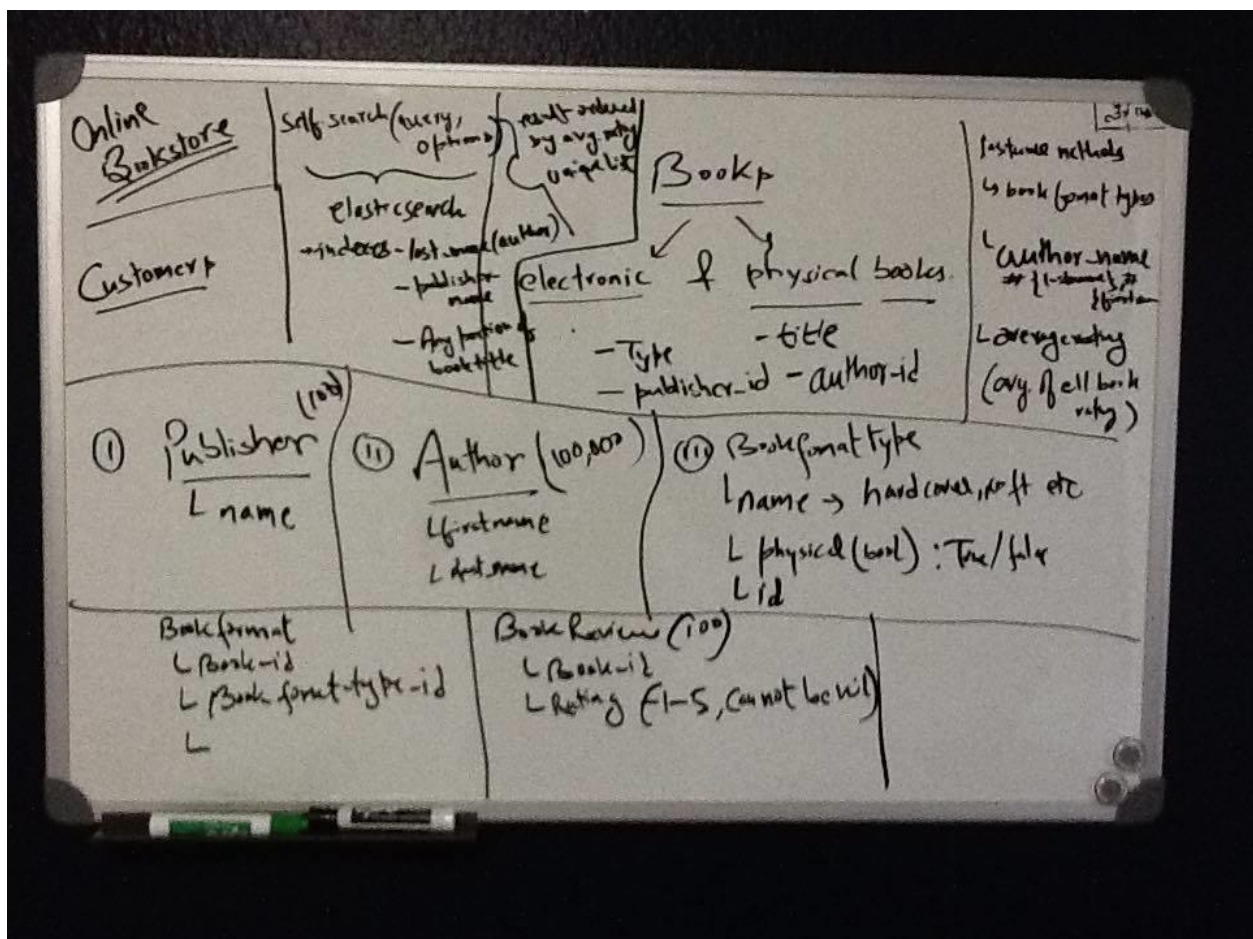 Online
Bookstore
Customer
Self search (query,
options)
elasticsearch
→ indexes - last_name (author)
- publisher
name
- Any portion of
book title
result ordered
by avg. rating
unique list
Book
electronic & physical books.
- Type
- title
- publisher_id - author_id
methods
↳ book format types
L author_name
L average rating
(avg. of all book
rating)
(100)
① Publisher
L name
(11) Author (100,000)
L first name
L last_name
(111) Book format type
L name → hardcover, soft etc
L physical (bool) : True/false
L id
Book format
L Book-id
L Book format-type-id
L
Book Review (100)
L Book-id
L Rating (1-5, cannot be nil)